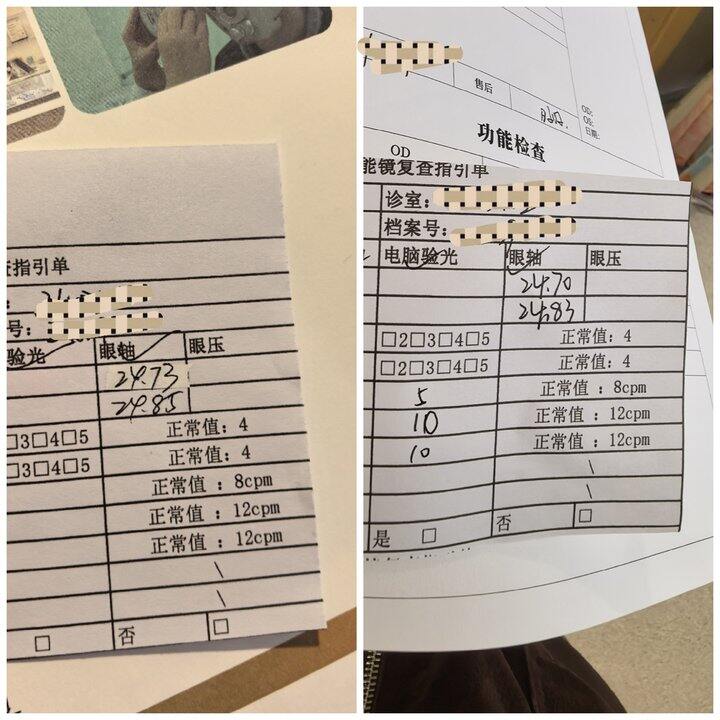 查指引单
号:
验光 眼轴 眼压
24.73
24.85
□3□4□5 正常值:4
□3□4□5 正常值:4
正常值:8cpm
正常值:12cpm
正常值:12cpm
\
\
□ 否 □
售后
OD:
OS:
日期:
功能检查
OD
能镜复查指引单
诊室:
档案号:
电脑验光 眼轴 眼压
24.70
24.83
□2□3□4□5 正常值:4
□2□3□4□5 正常值:4
5 正常值:8cpm
10 正常值:12cpm
10 正常值:12cpm
\
\
是 □ 否 □